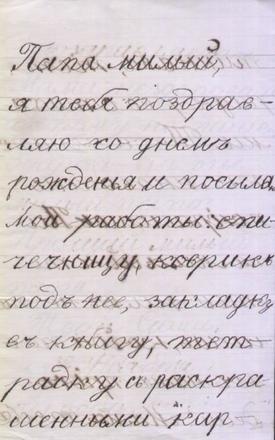 Папа милый,
я тебя поздрав-
ляю со днемъ
рожденья и посыла
мои работы: спи-
чечницу, коврикъ
подъ нее, закладку
въ книгу, тет-
радку съ раскра
шенными кар-